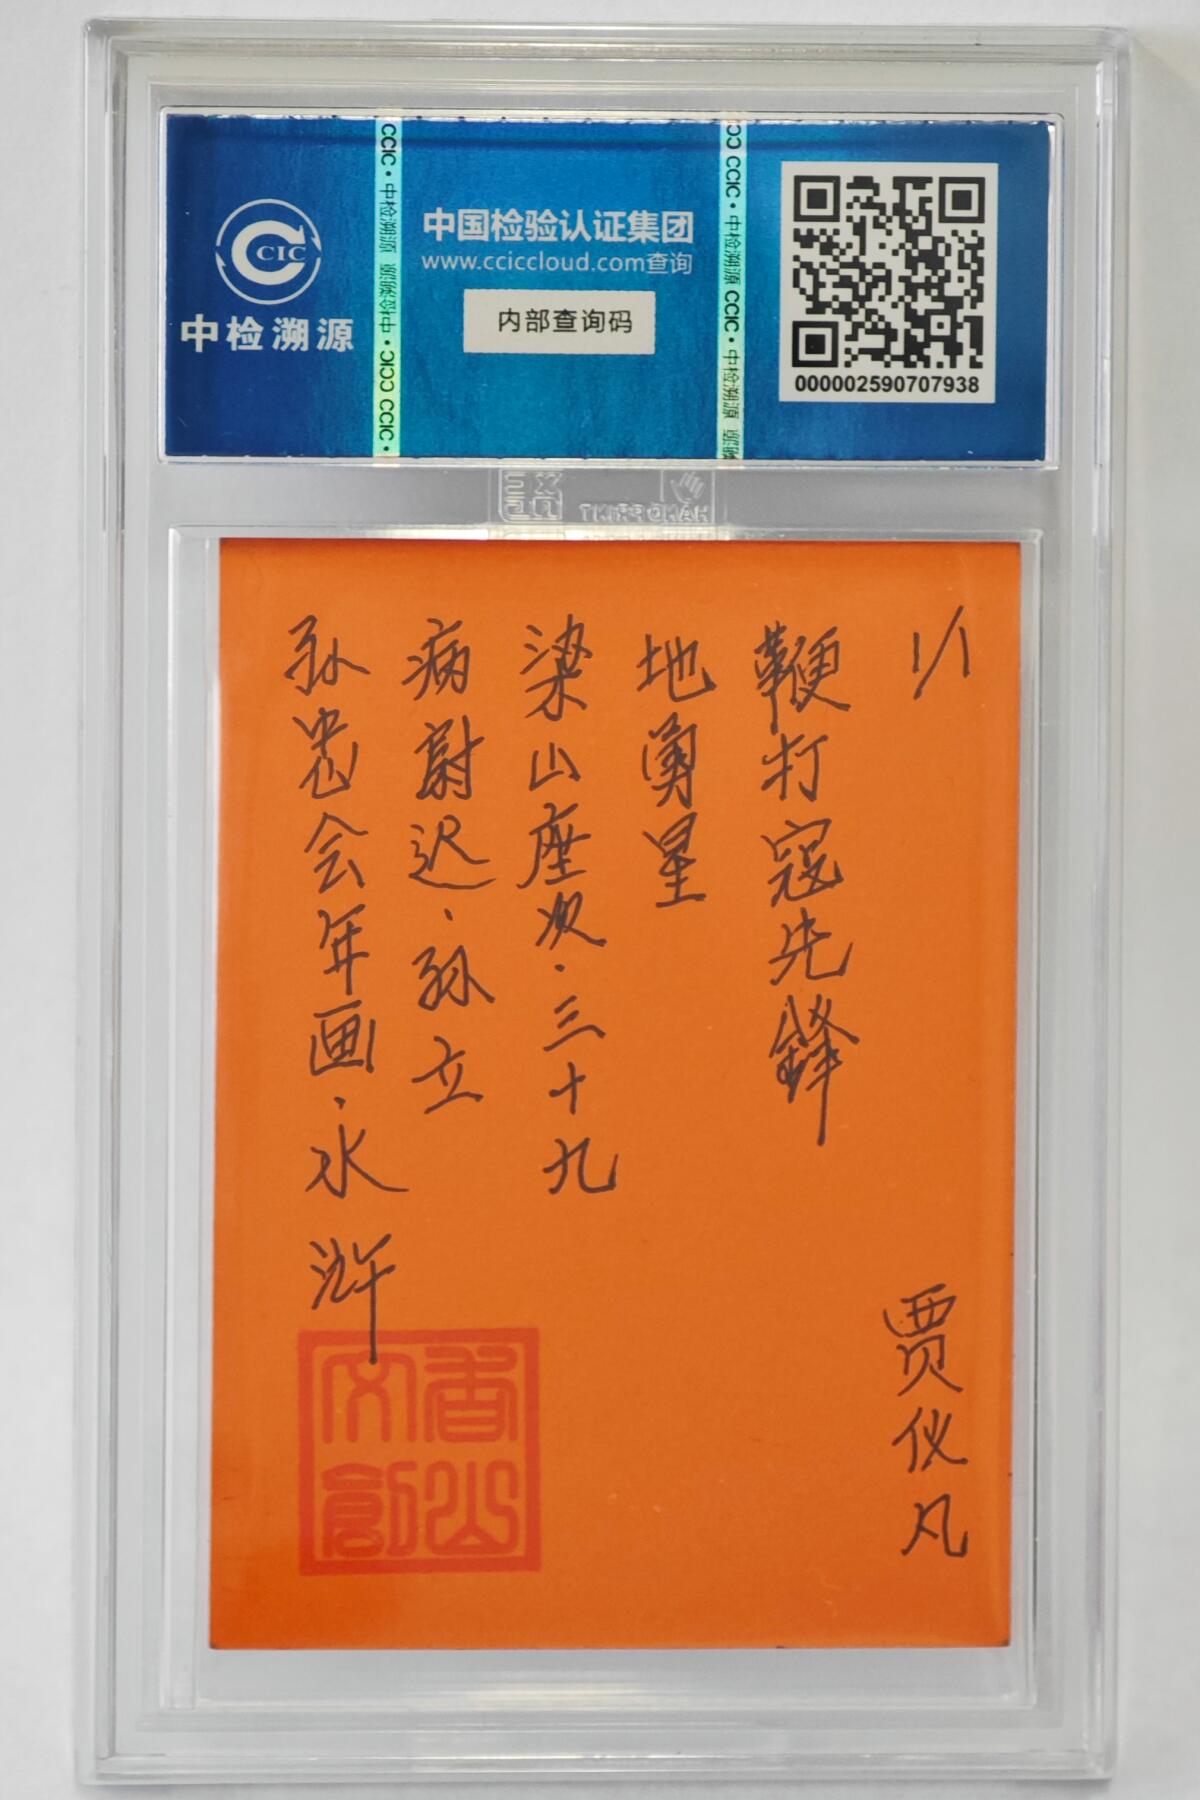 CCIC
中检溯源
CCIC・中检溯源
中国检验认证集团
www.cciccloud.com查询
内部查询码
000002590707938
HANDPRINT
1/1
鞭打寇先鋒
地勇星
梁山座次·三十九
病尉迟·孙立
孙忠会年画·水浒
贾仪凡
香山文創